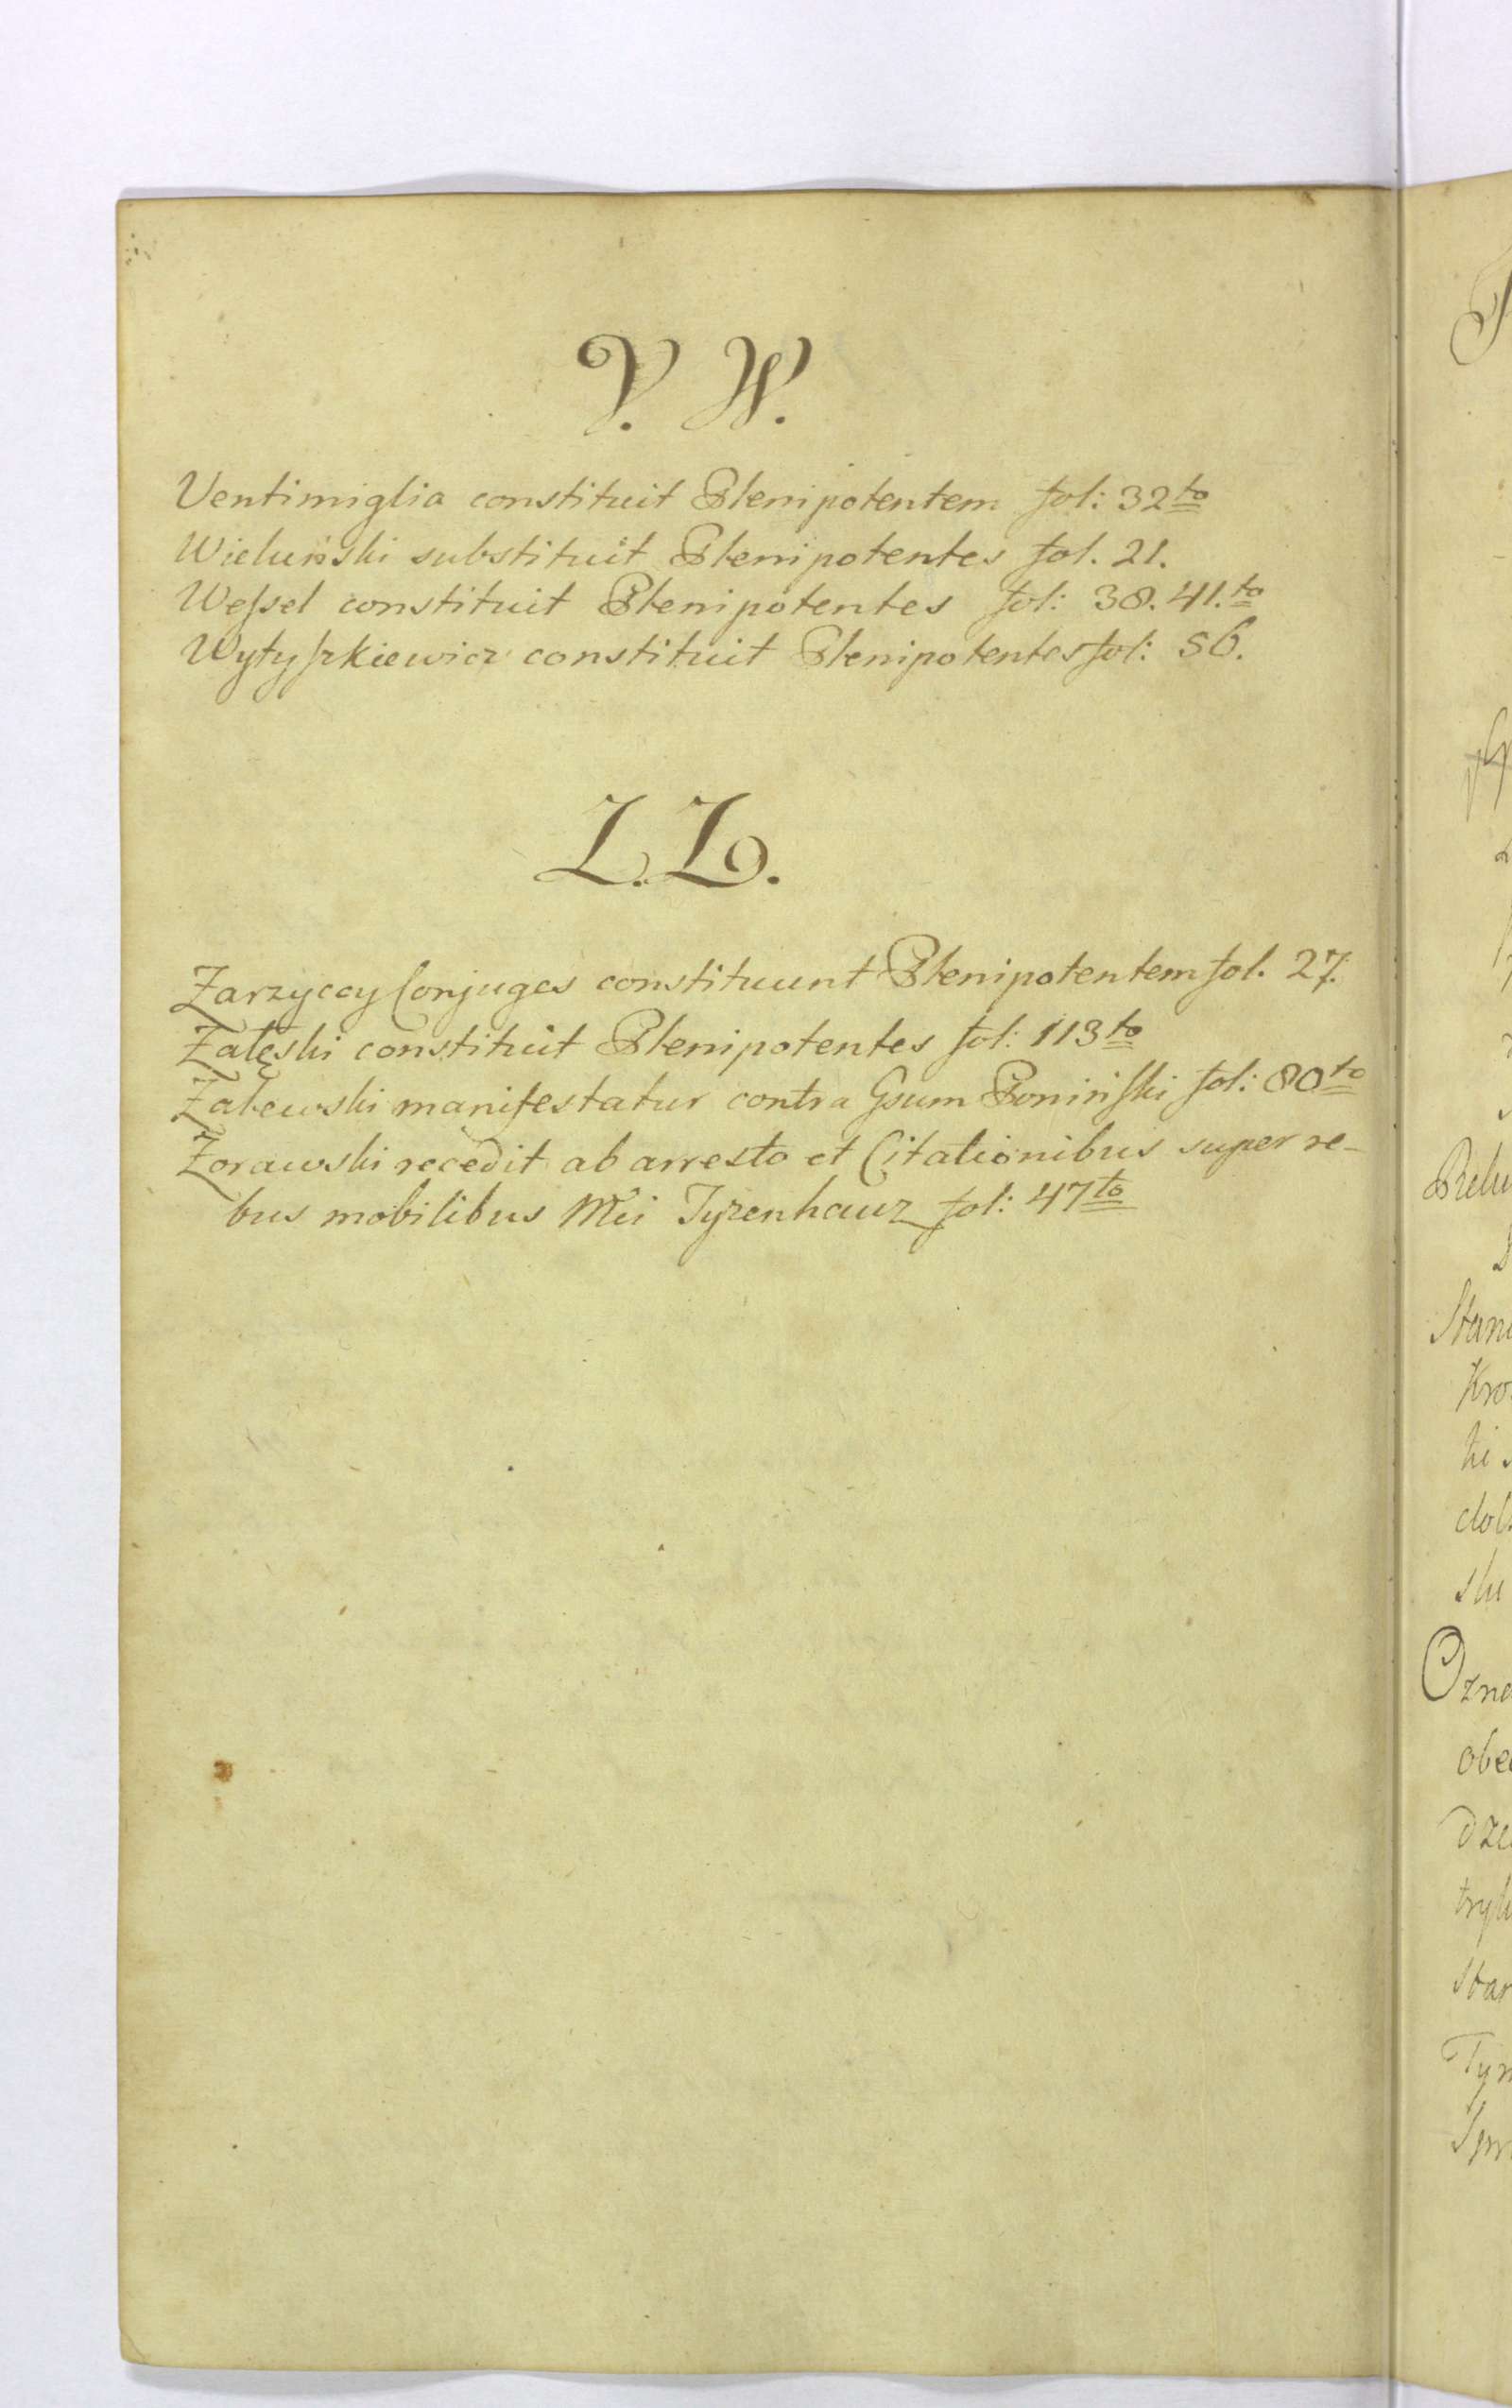 V. W.
Ventimiglia constituit Plenipotentem fol: 32to
Wieluński substituit Plenipotentes fol. 21.
Weſsel constituit Plenipotentes fol: 38. 41.to
Wytyſzkiewicz constituit Plenipotentes fol: 56.
Z. Z.
Zarzyccy Conjuges constituunt Plenipotentem fol. 27.
Zaleski constituit Plenipotentes fol: 113to
manifestatur contra Gsum Poninſki fol: 80to
Zorawski recedit ab arresto et Citationibus super re-
bus mobilibus Mei Tyzenhauz fol: 47to
Stan
Kro
ki
obe
dze
star
Tym